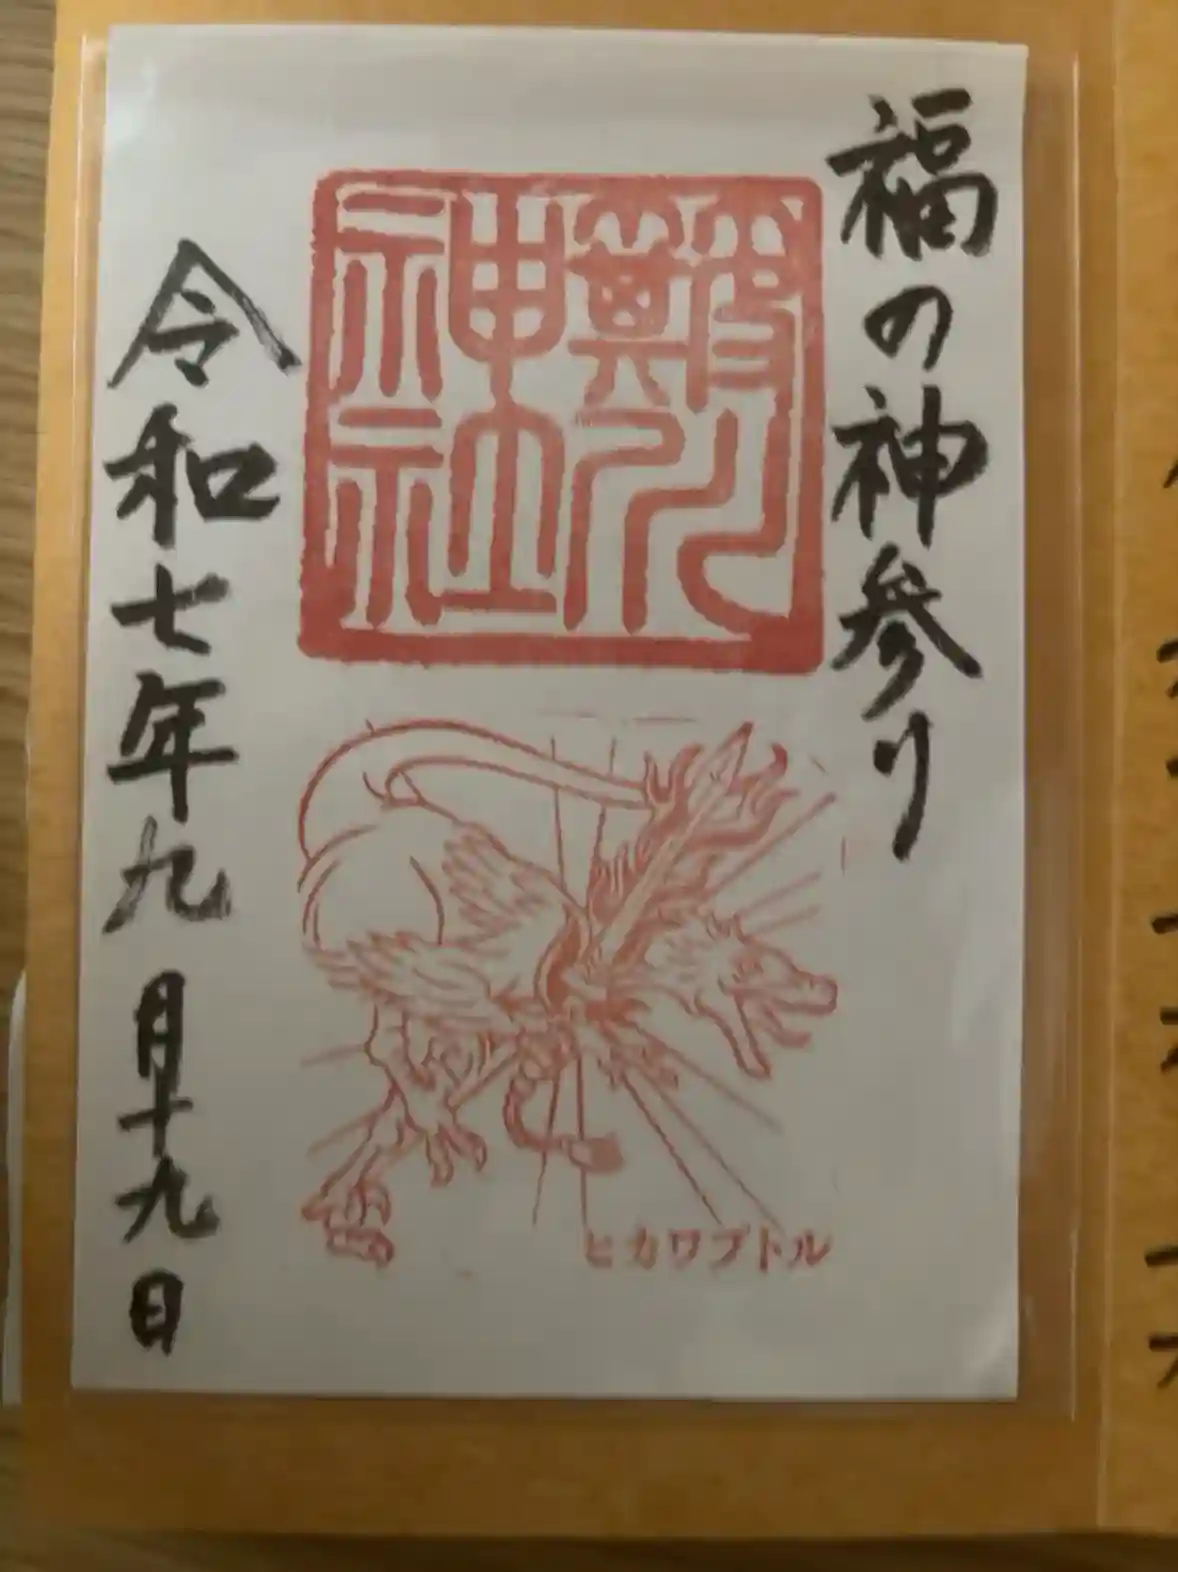 福の神参り
簸川
神社
ヒカワプトル
令和七年九月十九日